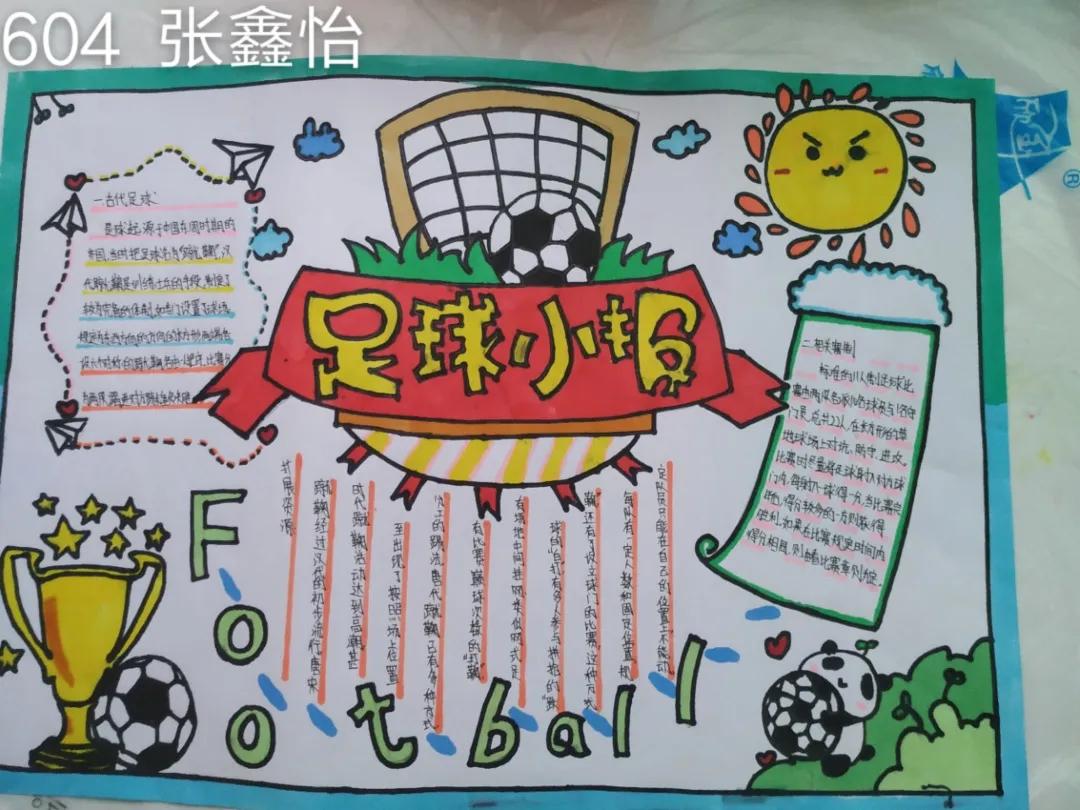 604 张鑫怡
足球小报
一.古代足球
足球起源于中国东周时期的
齐国,当时把足球名为"蹴鞠",汉
代蹴鞠是训练士兵的手段,制定了
较为完备的体制,如专门设置了球场,
规定为东西方向的
二.相关赛制
标准的11人制足球比
赛由两队各派10名球员与1名守
门员,总共22人,在长方形的草
地球场上对抗、防守、进攻。
比赛时尽量将足球射入对方球
门内,每射入一球得一分,当比赛完
毕后,得分较多的一方则获得
胜利,如果在比赛规定时间内
得分相同,则由看比赛章则而定。
扩展资源:
蹴鞠经过汉代的初步流行唐宋
时代蹴鞠活动达到高潮甚
至出现了按照"场上位置"
的踢法,唐代蹴鞠已有多种方式
有比赛颠球次数的"打鞠"
有场地中间挂网类似网式足
球的"白打"有多人参与拼抢的"跃
鞠"还有了设立球门的比赛,这种方式
每队有一定人数和固定位置,规
定队员只能在自己的位置上不能动
Football